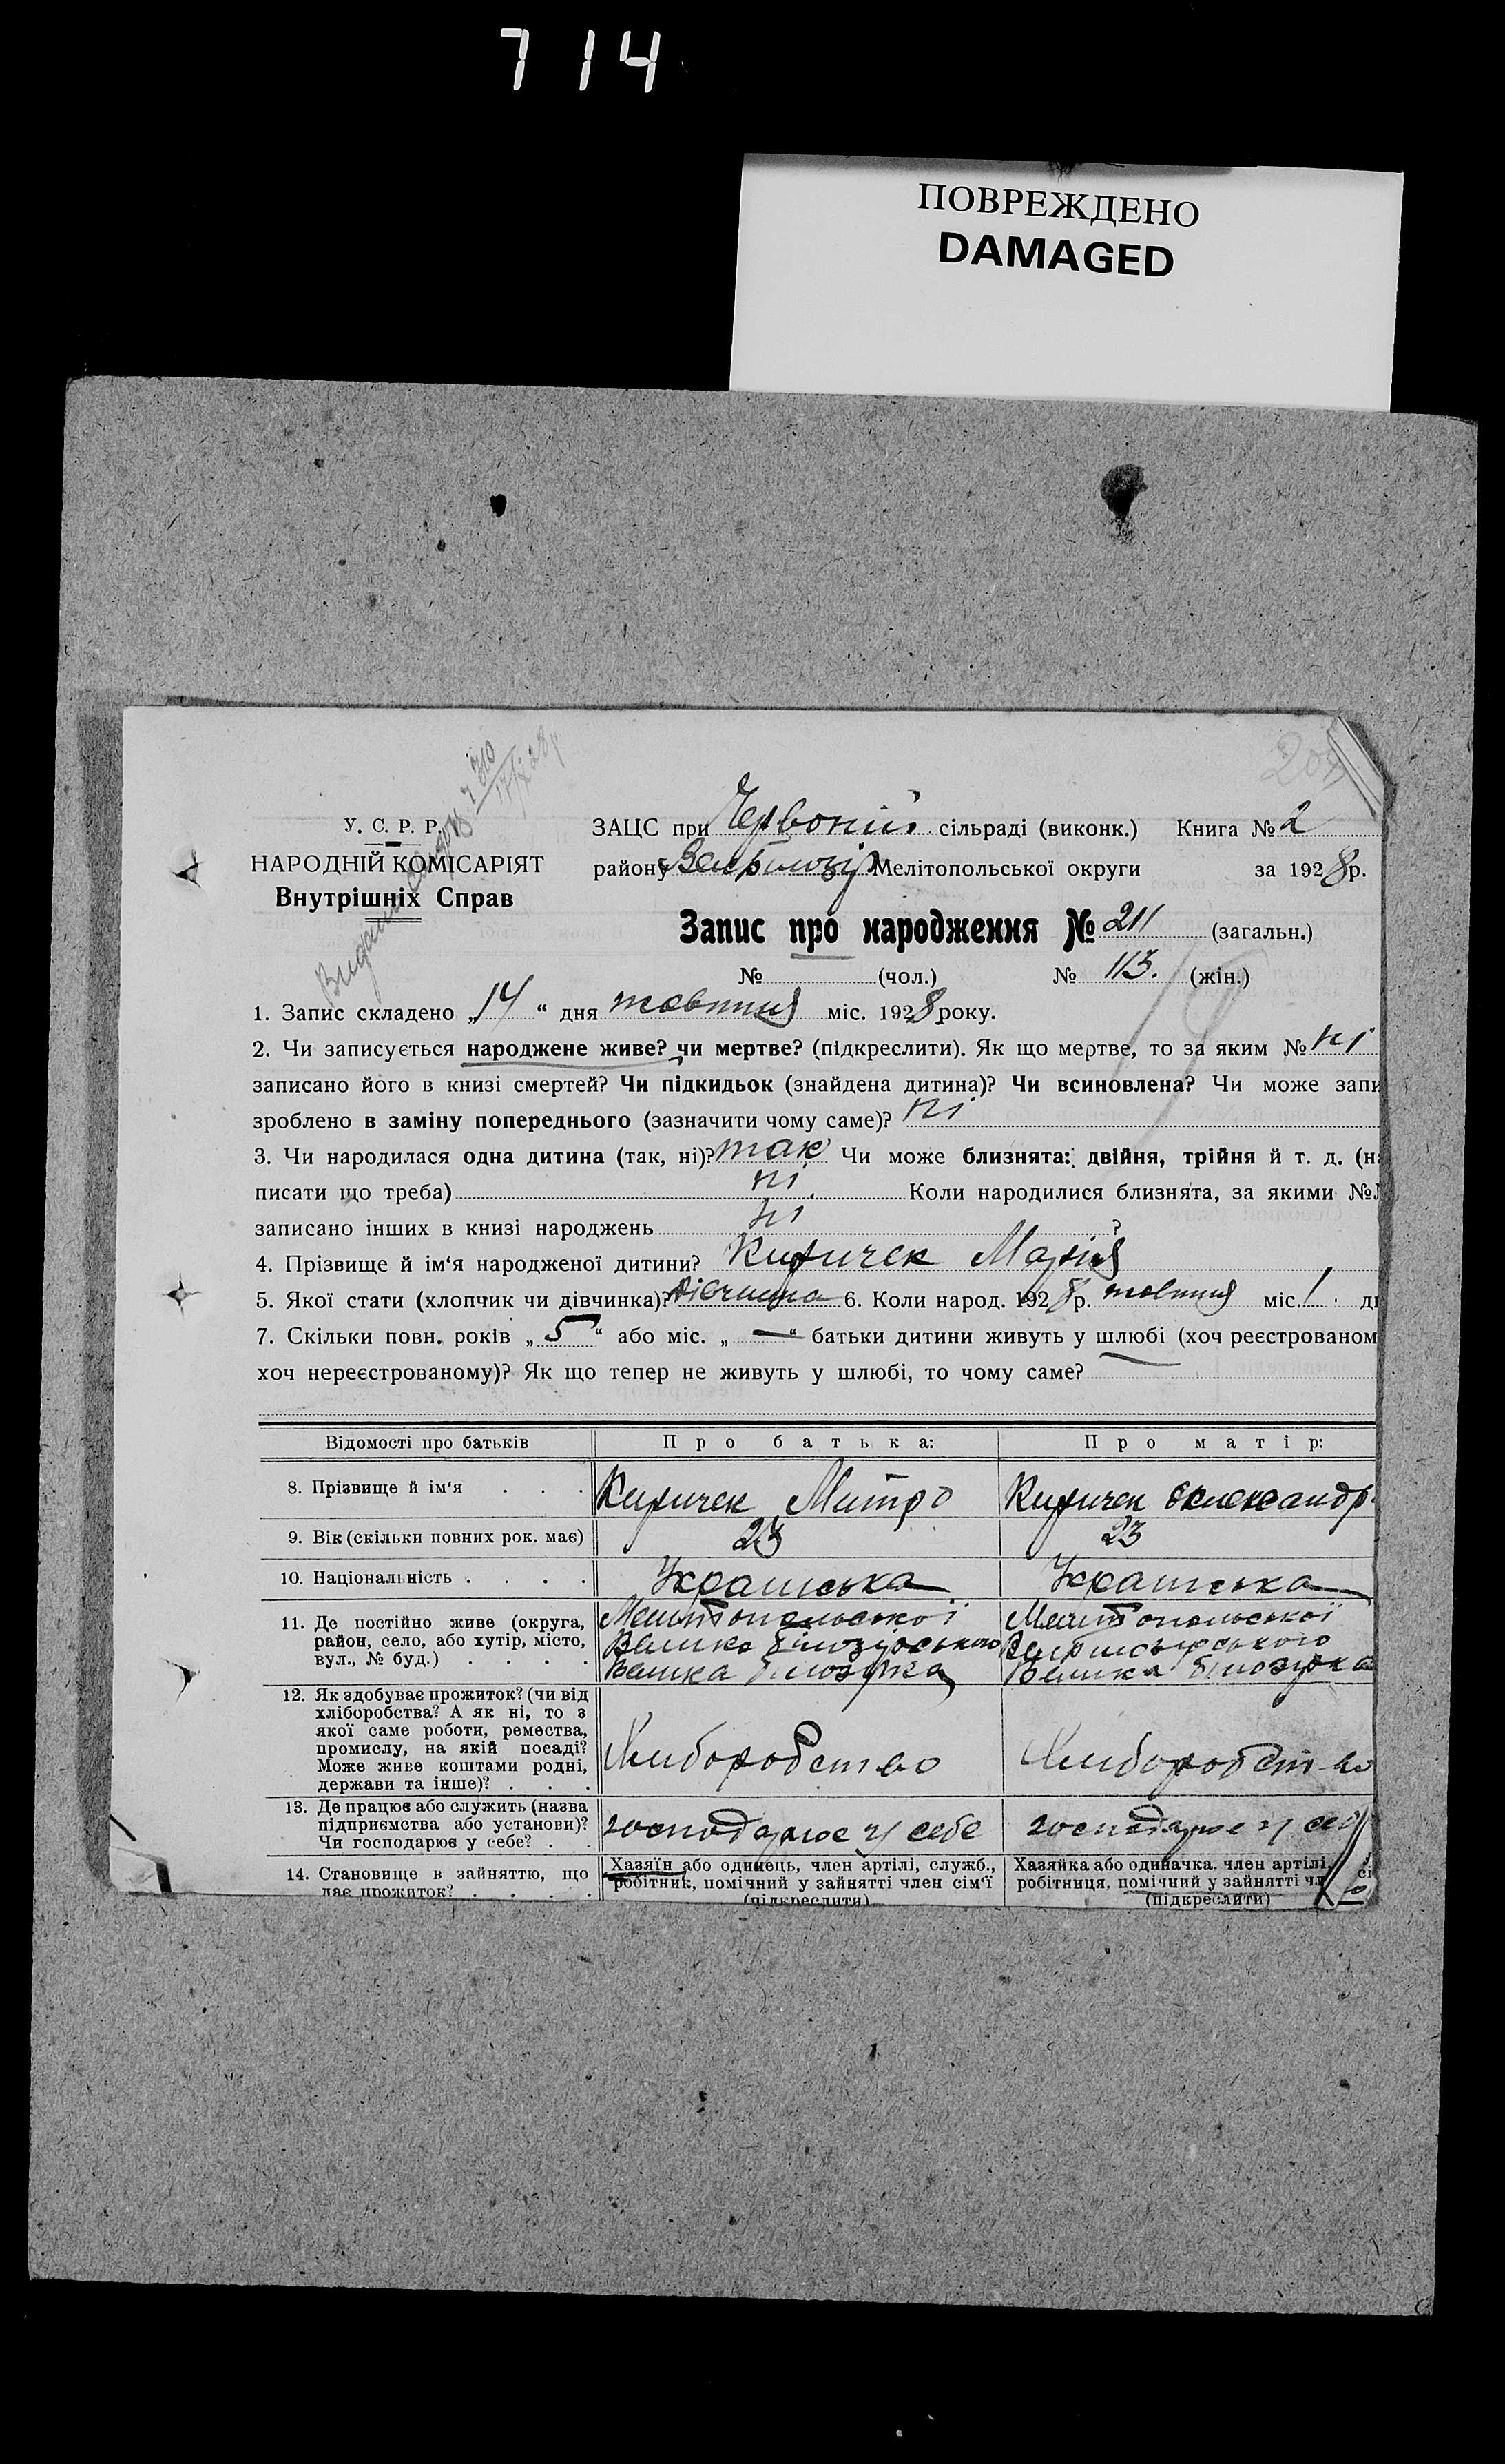 714
ПОВРЕЖДЕНО
DAMAGED
У. С. Р. Р.
НАРОДНІЙ КОМІСАРІЯТ
Внутрішніх Справ
ЗАЦС при Червоній сільраді (виконк.) Книга № 2
району Мелітопольської округи за 1928 р.
Запис про народження № 211 (загальн.)
№ (чол.) № 113. (жін.)
1. Запис складено „14“ дня жовтня міс. 1928 року.
2. Чи записується народжене живе? чи мертве? (підкреслити). Як що мертве, то за яким № ні
записано його в книзі смертей? Чи підкидьок (знайдена дитина)? Чи всиновлена? Чи може запи
зроблено в заміну попереднього (зазначити чому саме)? ні
3. Чи народилася одна дитина (так, ні)? так Чи може близнята: двійня, трійня й т. д. (на
писати що треба) ні Коли народилися близнята, за якими №
записано інших в книзі народжень ні ?
4. Прізвище й ім‘я народженої дитини? Киричек Марія
5. Якої стати (хлопчик чи дівчинка)? дівчинка 6. Коли народ. 1928 р. жовтня міс. 1 д
7. Скільки повн. років „5“ або міс. „—“ батьки дитини живуть у шлюбі (хоч реєстрованом
хоч нереєстрованому)? Як що тепер не живуть у шлюбі, то чому саме?
Відомості про батьків Про батька: Про матір:
8. Прізвище й ім‘я . . . Киричек Митро Киричек Олександр
9. Вік (скільки повних рок. має) 23 23
10. Національність . . . . Українська Українська
11. Де постійно живе (округа, Мелітопольської Мелітопольської
район, село, або хутір, місто, Велико білозірського
вул., № буд.) . . . . Велика білозірка Велика білозірка
12. Як здобуває прожиток? (чи від
хліборобства? А як ні, то з
якої саме роботи, ремества,
промислу, на якій посаді? Хліборобство Хліборобство
Може живе коштами родні,
держави та інше)? . . .
13. Де працює або служить (назва
підприємства або установи)? господарює у себе господарює у себе
Чи господарює у себе? . .
14. Становище в зайняттю, що Хазяїн або одинець, член артілі, служб., Хазяйка або одиначка. член артілі,
дає прожиток? . . . . робітник, помічний у зайнятті член сім‘ї робітниця, помічний у зайнятті чл сі
(підкреслити) (підкреслити)